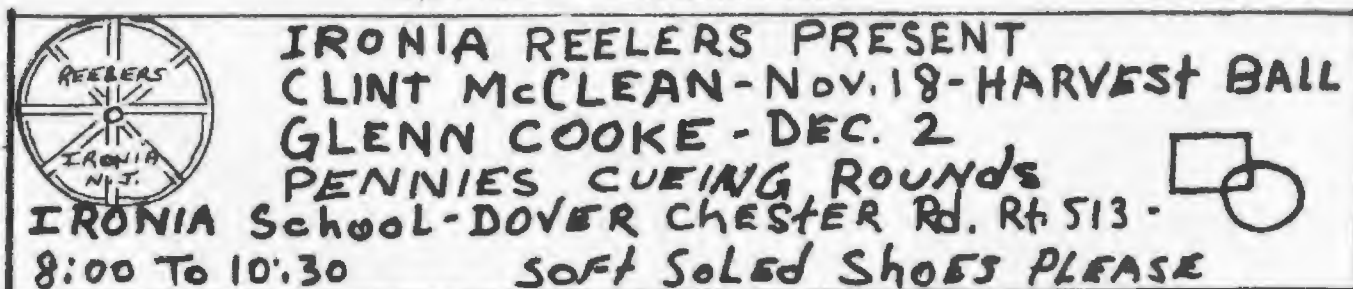 REELERS
IRONIA
N.J.
IRONIA REELERS PRESENT
CLINT McCLEAN-Nov.18-HARVESt BALL
GLENN COOKE - DEC. 2
PENNIES CUEING ROUNds
IRONIA SchooL-DOVER ChEStER Rd. Rt. 513-
8:00 To 10:30 SOFt SoLEd ShoES PLEASE